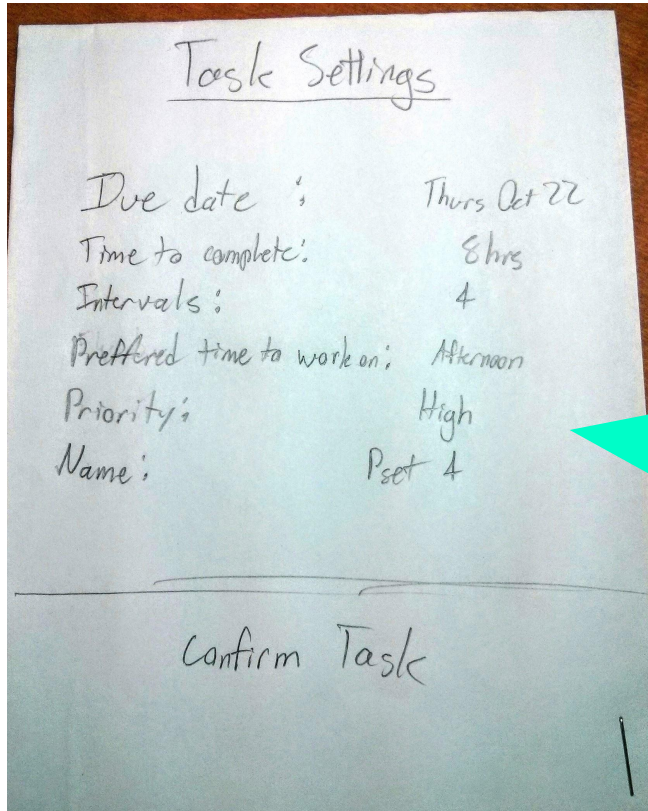 Task Settings
Due date : Thurs Oct 22
Time to complete: 8 hrs
Intervals: 4
Preffered time to work on: Afternoon
Priority: High
Name: Pset 4
Confirm Task